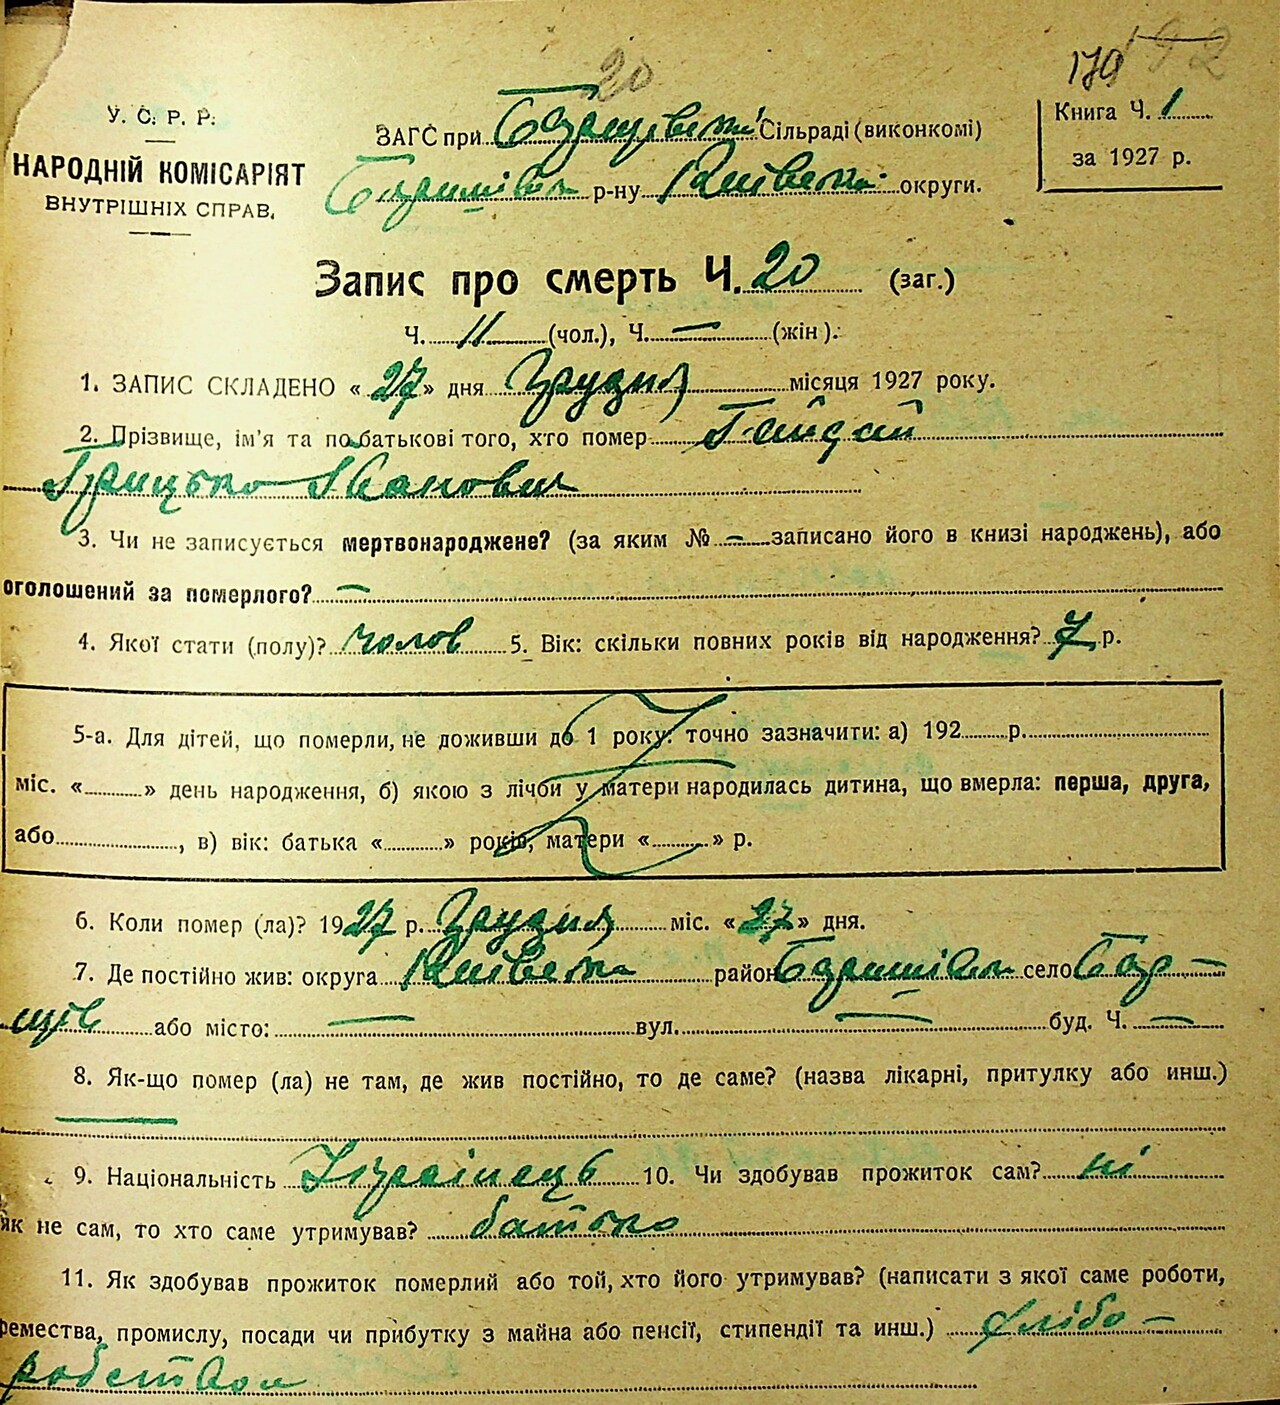 20
179 192
У. С. Р. Р.
НАРОДНІЙ КОМІСАРІЯТ
ВНУТРІШНІХ СПРАВ.
ЗАГС при Борщівській Сільраді (виконкомі)
Баришівськ р-ну Київської округи.
Книга Ч. 1
за 1927 р.
Запис про смерть Ч. 20 (заг.)
Ч. 11 (чол.), Ч. — (жін).
1. ЗАПИС СКЛАДЕНО « 27 » дня Грудня місяця 1927 року.
2. Прізвище, ім'я та побатькові того, хто помер Гайдай
Грицько Іванович
3. Чи не записується мертвонароджене? (за яким № — записано його в книзі народжень), або
оголошений за померлого? —
4. Якої стати (полу)? чолов 5. Вік: скільки повних років від народження? 7 р.
5-а. Для дітей, що померли, не доживши до 1 року: точно зазначити: а) 192 р.
міс. « » день народження, б) якою з лічби у матери народилась дитина, що вмерла: перша, друга,
або , в) вік: батька « » років, матери « » р.
6. Коли помер (ла)? 1927 р. Грудня міс. « 27 » дня.
7. Де постійно жив: округа Київська район Баришівськ село Бор-
щів або місто: — вул. — буд. Ч. —
8. Як-що помер (ла) не там, де жив постійно, то де саме? (назва лікарні, притулку або инш.)
—
9. Національність Українець 10. Чи здобував прожиток сам? ні
як не сам, то хто саме утримував? батько
11. Як здобував прожиток померлий або той, хто його утримував? (написати з якої саме роботи,
ремества, промислу, посади чи прибутку з майна або пенсії, стипендії та инш.) хлібо-
робством